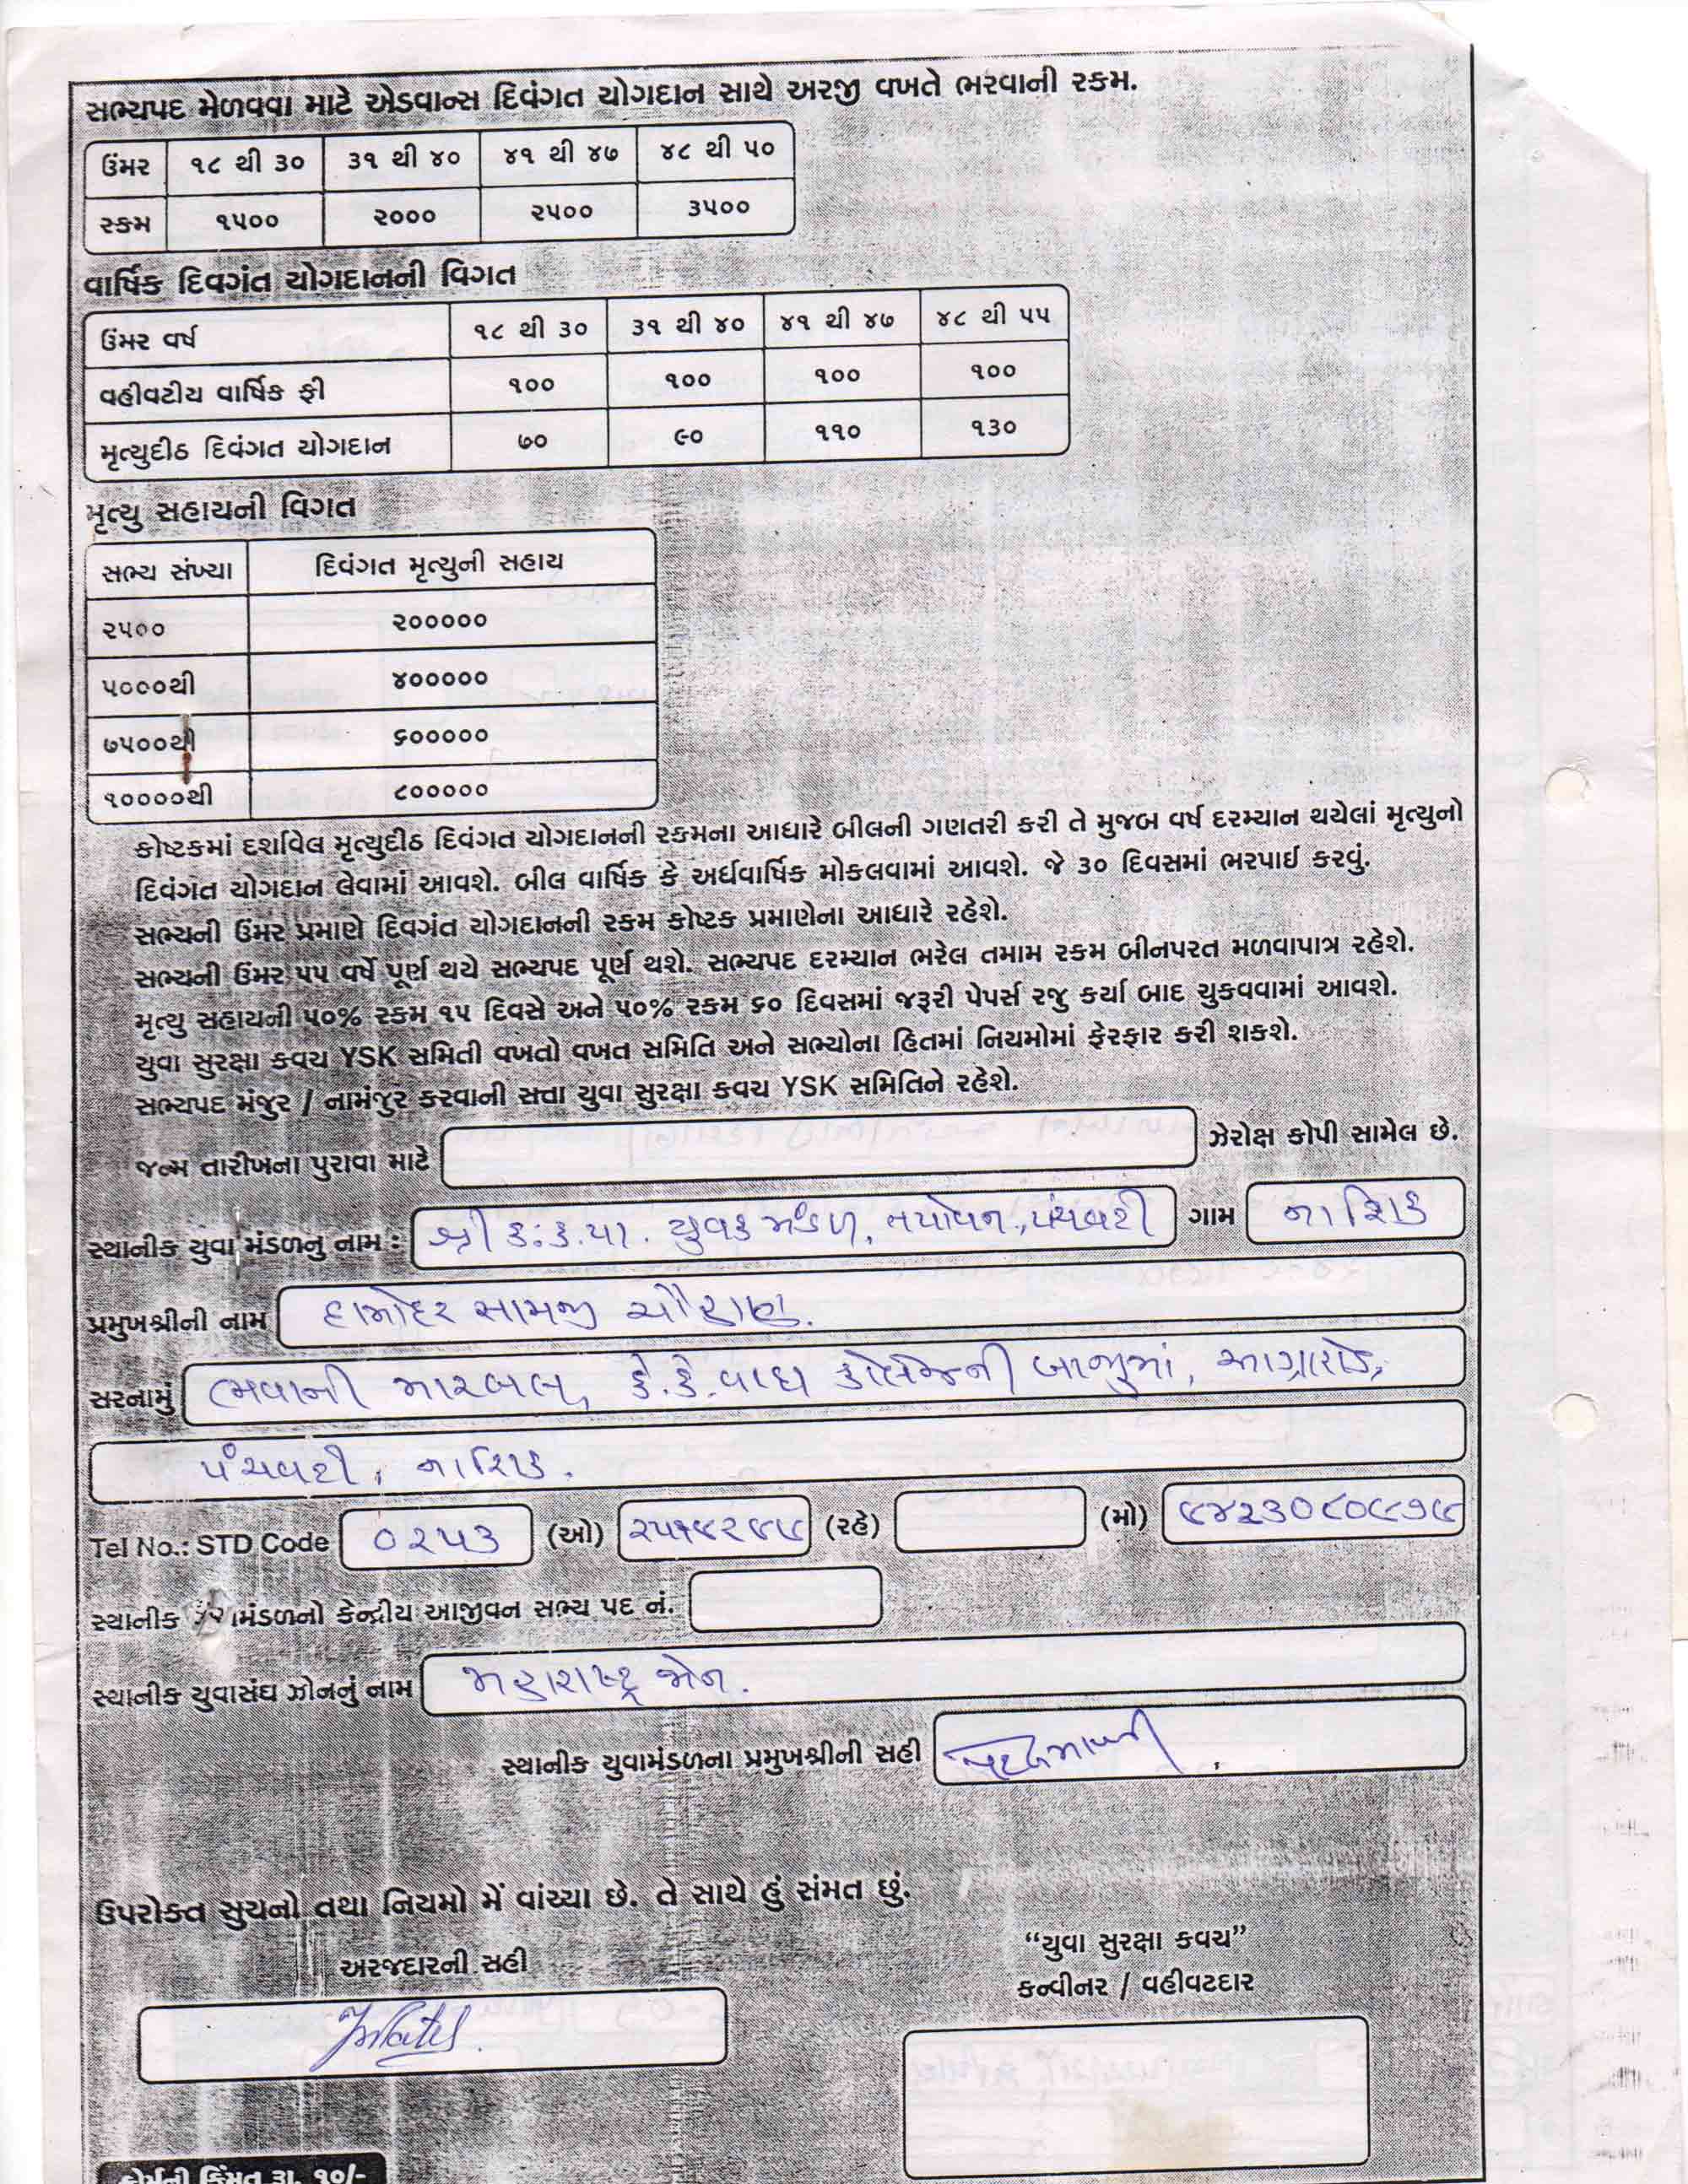 સભ્યપદ મેળવવા માટે એડવાન્સ દિવંગત યોગદાન સાથે અરજી વખતે ભરવાની રકમ.
ઉંમર ૧૮ થી ૩૦ ૩૧ થી ૪૦ ૪૧ થી ૪૭ ૪૮ થી ૫૦
રકમ ૧૫૦૦ ૨૦૦૦ ૨૫૦૦ ૩૫૦૦
વાર્ષિક દિવગંત યોગદાનની વિગત
ઉંમર વર્ષ ૧૮ થી ૩૦ ૩૧ થી ૪૦ ૪૧ થી ૪૭ ૪૮ થી ૫૫
વહીવટીય વાર્ષિક ફી ૧૦૦ ૧૦૦ ૧૦૦ ૧૦૦
મૃત્યુદીઠ દિવંગત યોગદાન ૭૦ ૯૦ ૧૧૦ ૧૩૦
મૃત્યુ સહાયની વિગત
સભ્ય સંખ્યા દિવંગત મૃત્યુની સહાય
૨૫૦૦ ૨૦૦૦૦૦
૫૦૦૦થી ૪૦૦૦૦૦
૭૫૦૦થી ૬૦૦૦૦૦
૧૦૦૦૦થી ૮૦૦૦૦૦
કોષ્ટકમાં દર્શાવેલ મૃત્યુદીઠ દિવંગત યોગદાનની રકમના આધારે બીલની ગણતરી કરી તે મુજબ વર્ષ દરમ્યાન થયેલાં મૃત્યુનો
દિવંગત યોગદાન લેવામાં આવશે. બીલ વાર્ષિક કે અર્ધવાર્ષિક મોકલવામાં આવશે. જે ૩૦ દિવસમાં ભરપાઈ કરવું.
સભ્યની ઉંમર પ્રમાણે દિવગંત યોગદાનની રકમ કોષ્ટક પ્રમાણેના આધારે રહેશે.
સભ્યની ઉંમર ૫૫ વર્ષે પૂર્ણ થયે સભ્યપદ પૂર્ણ થશે. સભ્યપદ દરમ્યાન ભરેલ તમામ રકમ બીનપરત મળવાપાત્ર રહેશે.
મૃત્યુ સહાયની ૫૦% રકમ ૧૫ દિવસે અને ૫૦% રકમ ૬૦ દિવસમાં જરૂરી પેપર્સ રજુ કર્યા બાદ ચુકવવામાં આવશે.
યુવા સુરક્ષા કવચ YSK સમિતી વખતો વખત સમિતિ અને સભ્યોના હિતમાં નિયમોમાં ફેરફાર કરી શકશે.
સભ્યપદ મંજુર / નામંજુર કરવાની સત્તા યુવા સુરક્ષા કવચ YSK સમિતિને રહેશે.
જન્મ તારીખના પુરાવા માટે ઝેરોક્ષ કોપી સામેલ છે.
સ્થાનીક યુવા મંડળનુ નામ : શ્રી ક.ક.પા. યુવક મંડળ, તપોવન, પંચવટી ગામ નાશિક
પ્રમુખશ્રીની નામ દામોદર સામજી ચૌહાણ.
સરનામું ભવાની મારબલ, કે.કે.વાઘ કોલેજની બાજુમાં, આગ્રારોડ,
પંચવટી, નાશિક.
Tel No.: STD Code ૦૨૫૩ (ઓ) (રહે) (મો)
સ્થાનીક મંડળનો કેન્દ્રીય આજીવન સભ્ય પદ નં.
સ્થાનીક યુવાસંઘ ઝોનનું નામ મહારાષ્ટ્ર ઝોન.
સ્થાનીક યુવામંડળના પ્રમુખશ્રીની સહી
ઉપરોક્ત સુચનો તથા નિયમો મેં વાંચ્યા છે. તે સાથે હું સંમત છું.
અરજદારની સહી
“યુવા સુરક્ષા કવચ”
કન્વીનર / વહીવટદાર
ફોર્મની કિંમત રૂા. ૧૦/-